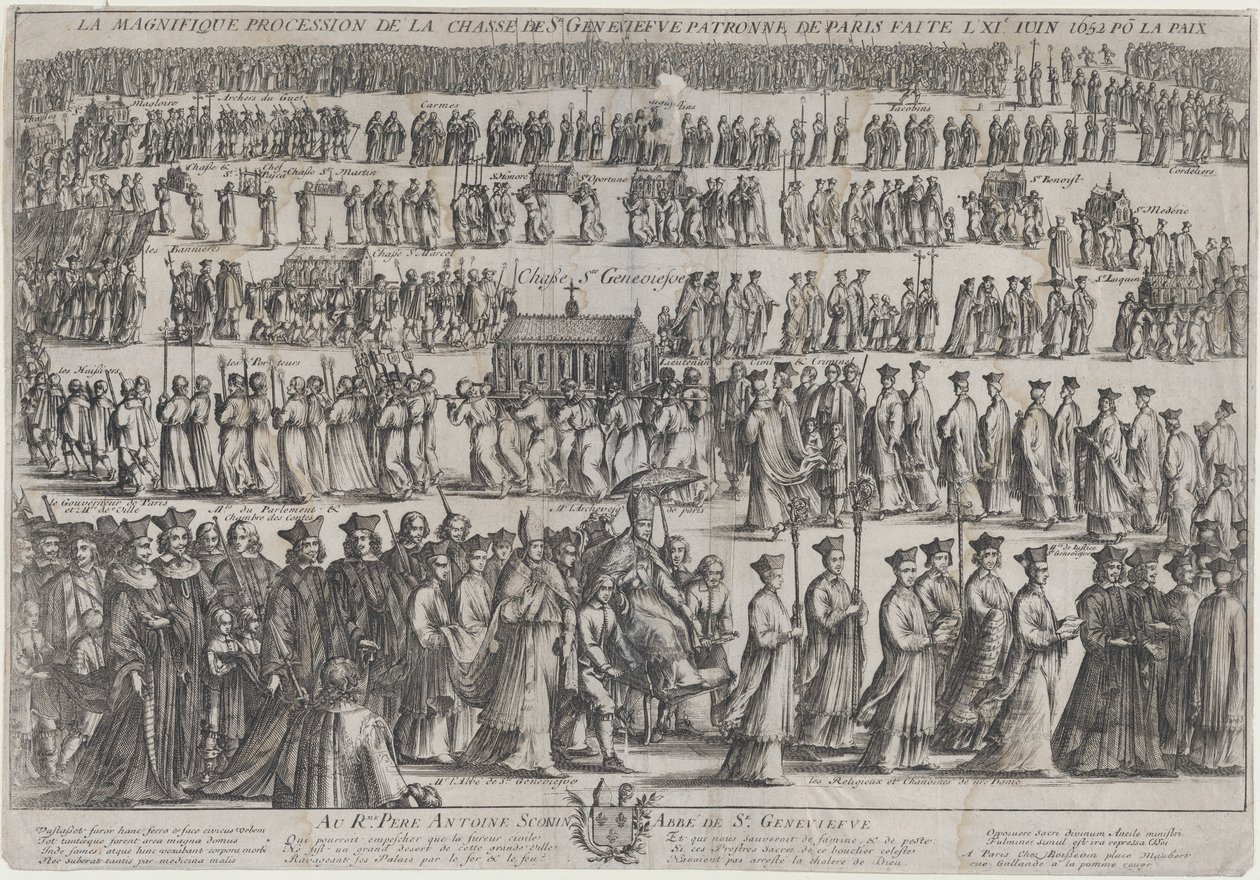 LA MAGNIFIQUE PROCESSION DE LA CHASSE DE Ste GENEVIEFVE PATRONNE DE PARIS FAITE L'XIe IUIN 1652 PŌ LA PAIX
Chasse St Magloire
Archers du Guet
Carmes
Augustins
Iacobins
Cordeliers
Chasse &
Chef
St
Chasse St Martin
St Honoré
Ste Oportune
St Benoist
St Mederic
les Bannieres
Chasse St Marcel
Chasse Ste Geneviefve
St Luquin
les Huissiers
les Porteurs
Lieutenan Civil & Criminel
le Gouverneur de Paris
et Mrs de Ville
Mrs du Parlement &
Chambre des Contes
Mr l'Archevesq de paris
Mrs de Iustice
Ste Geneviefve
Mr l'Abbé de Ste Geneviefve
les Religieux et Chanoines de nre Dame
AU Rme PERE ANTOINE SCONIN ABBE DE Ste GENEVIEFVE
Vastasset furor hanc ferro & face civicus Urbem
Tot tantæque forent arca magna domus
Inde fames, atque hinc vexabant corpora morbi
Nec suberat tantis par medicina malis
Qui pourroit empescher que la fureur civile
Ne fist un grand desert de cette grande Ville
Ravageant ses Palais par le fer & le feu?
Et qui nous sauveroit de famine, & de peste
Si ces Prestres sacrez de ce bouclier celeste
N'avoient pas arresté la cholere de Dieu.
Opposuere Sacri divinum Ancile ministri
Fulmineæ simul est ira repressa Dei
A Paris Chez Boissevin place Maubert
rue Gallande a la pomme rouge